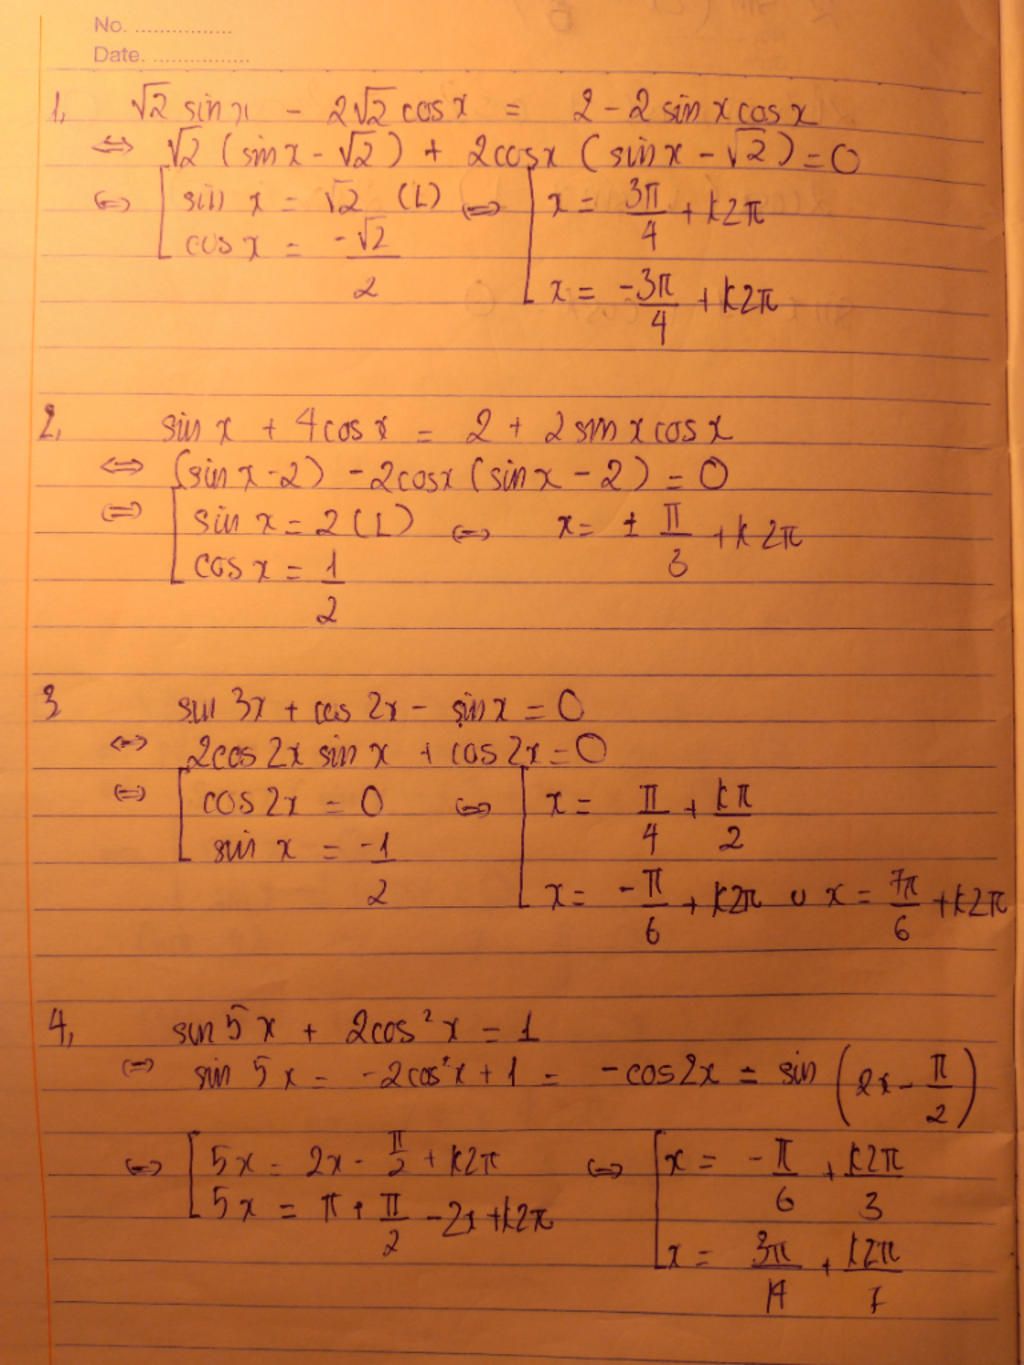 No. ................
Date. ................
1, √2 sin x - 2√2 cos x = 2 - 2 sin x cos x
⇔ √2 (sin x - √2) + 2cosx (sin x - √2) = 0
⇔ [ sin x = √2 (L) ⇔ [ x = 3π/4 + k2π
cos x = -√2/2
x = -3π/4 + k2π
2, sin x + 4cos x = 2 + 2 sin x cos x
⇔ (sin x - 2) - 2cosx (sin x - 2) = 0
⇔ [ sin x = 2 (L) ⇔ x = ± π/3 + k2π
cos x = 1/2
3 sin 3x + cos 2x - sin x = 0
⇔ 2cos 2x sin x + cos 2x = 0
⇔ [ cos 2x = 0 ⇔ [ x = π/4 + kπ/2
sin x = -1/2
x = -π/6 + k2π ∪ x = 7π/6 + k2π
4, sin 5x + 2cos²x = 1
⇔ sin 5x = -2cos²x + 1 = -cos2x = sin (2x - π/2)
⇔ [ 5x = 2x - π/2 + k2π ⇔ [ x = -π/6 + k2π/3
5x = π + π/2 - 2x + k2π
x = 3π/14 + k2π/7